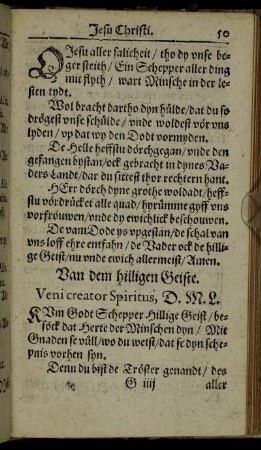 Jesu Christi. / 50
O Jesu aller salicheit / tho dy vnse be-
ger steith / Ein Schepper aller ding
mit flyth / wart Minsche in der le-
sten tydt.
Wol bracht dartho dyn hülde / dat du so
drögest vnse schülde / vnde woldest vör vns
lyden / vp dat wy den Dodt vormyden.
De Helle hefftu dörchgegan / vnde den
gefangen bystan / ock gebracht in dynes Va-
ders Landt / dar du sittest thor rechtern hant.
HErr dörch dyne grothe woldadt / heff-
stu vördrücket alle quad / hyrümme gyff vns
vorfröuwen / vnde dy ewichlick beschouwen.
De vam Dode ys vpgestan / de schal van
vns loff ehre entfahn / de Vader ock de hilli-
ge Geist / nu vnde ewich allermeist / Amen.
Van dem hilligen Geiste.
Veni creator Spiritus, D. M. L.
KVm Godt Schepper Hillige Geist / be-
söck dat Herte der Minschen dyn / Mit
Gnaden se vüll / wo du weist / dat se dyn sche-
pnis vorhen syn.
Denn du bist de Tröster genandt / des
G iiij aller